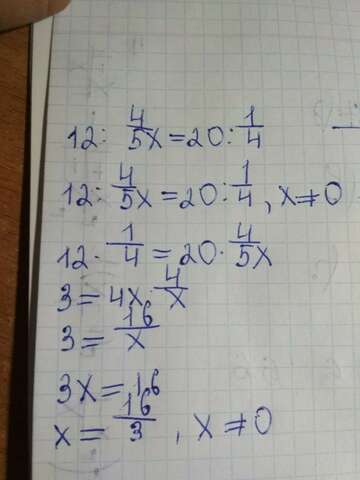 12: 4/5x = 20 : 1/4
12: 4/5x = 20 : 1/4, x ≠ 0
12 · 1/4 = 20 · 4/5x
3 = 4x · 4/x
3 = 16/x
3x = 16
x = 16/3, x ≠ 0